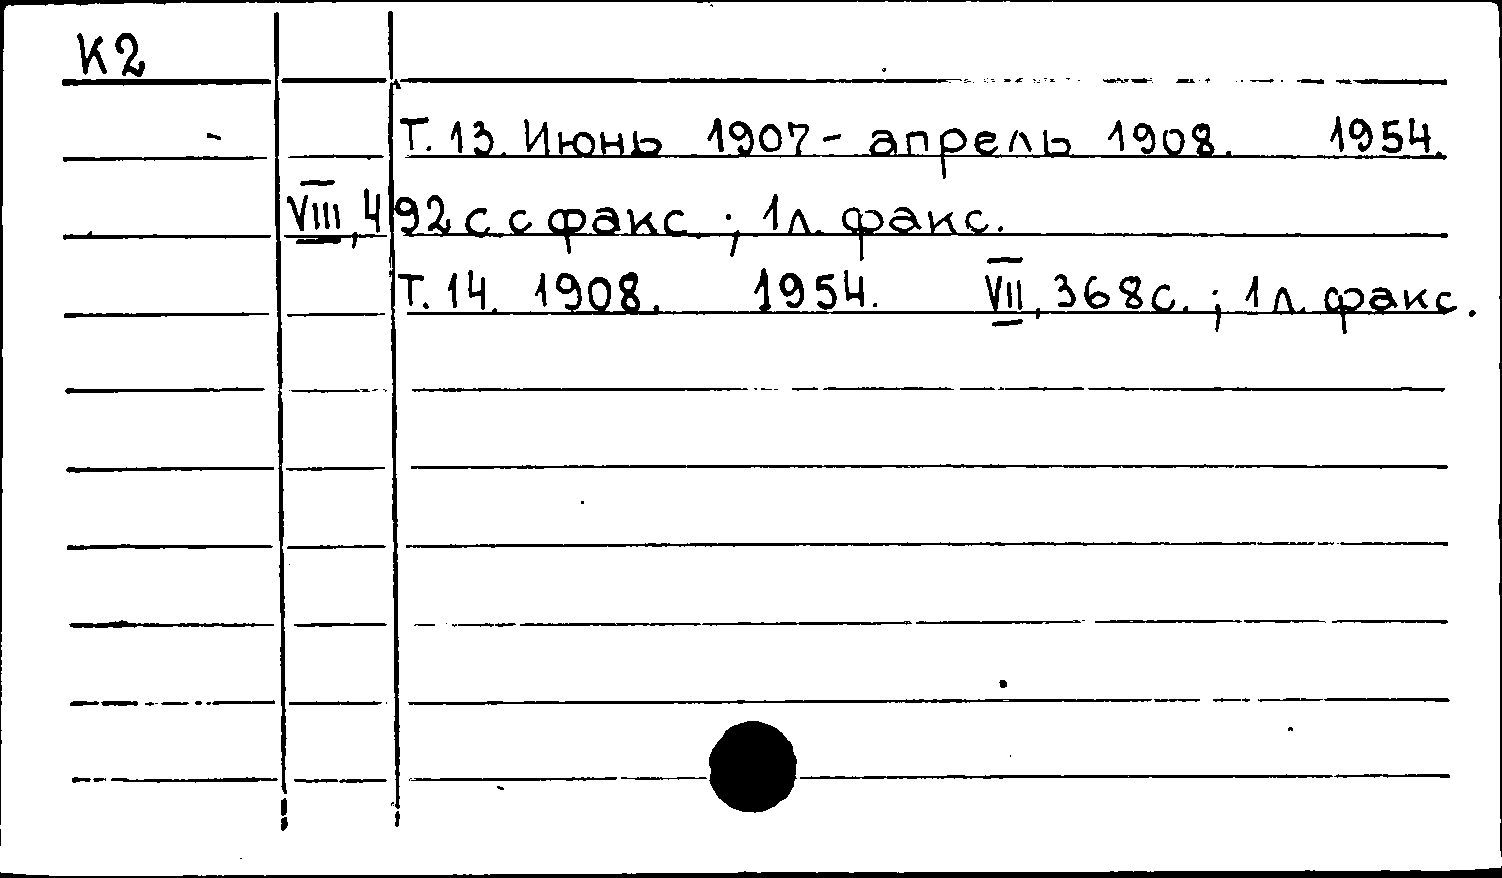 К2
Т. 13. Июнь 1907 - апрель 1908. 1954.
VIII, 492 с с факс. ; 1 л. факс.
Т. 14. 1908. 1954. VII, 368 с. ; 1 л. факс.